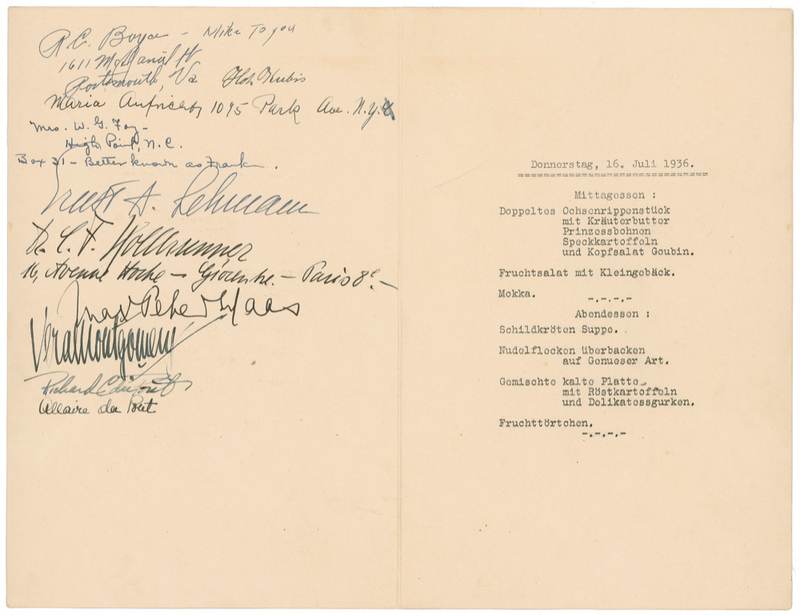 R.C. Boyer - Mike to you
1611 McDaniel St
Portsmouth, Va
Maria 1095 Park Ave. N.Y.C
Mrs. W. G. Foy -
High Point, N.C.
Box 31 - Better known as Frank.
Ernst A. Lehmann
16, Avenue Hoche - - Paris 8e -
Peter Maas
Vera Montgomery
Richard C. du Pont
Allaire du Pont
Donnerstag, 16. Juli 1936.
Mittagessen :
Doppeltes Ochsenrippenstück
mit Kräuterbutter
Prinzessbohnen
Speckkartoffeln
und Kopfsalat Goubin.
Fruchtsalat mit Kleingebäck.
Mokka.
-.-.-.-
Abendessen :
Schildkröten Suppe.
Nudelflecken überbacken
auf Genueser Art.
Gemischte kalte Platte
mit Röstkartoffeln
und Delikatessgurken.
Fruchttörtchen.
-.-.-.-